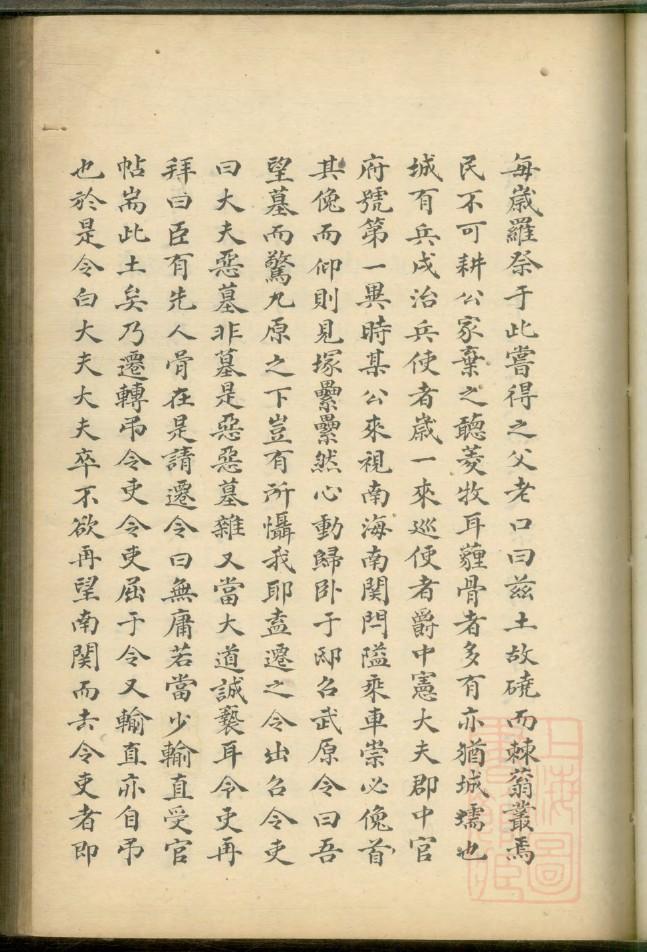 每歲羅祭于此嘗得之父老口曰茲土故磽而棘蓊叢焉
民不可耕公家棄之聽菱牧耳薶骨者多有亦猶城壖也
城有兵戍治兵使者歲一來巡使者爵中憲大夫郡中官
府號第一異時某公來視南海南関閂隘乘車崇必俛首
其俛而仰則見塚纍纍然心動歸卧于邸召武原令曰吾
望墓而驚九原之下豈有所懾我耶盍遷之令出召令吏
曰大夫惡墓非墓是惡惡墓雜又當大道誠褻耳令吏再
拜曰臣有先人骨在是請遷令曰無庸若當少輸直受官
帖耑此土矣乃遷轉弔令吏令吏屈于令又輸直亦自弔
也於是令白大夫大夫卒不欲再望南関而去令吏者即
上海圖書館藏